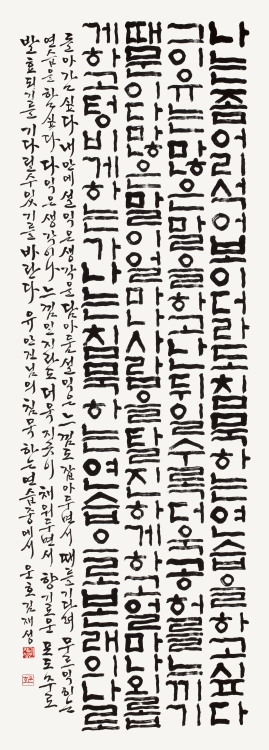 나는좀어리석어보이더라도침묵하는연습을하고싶다
그이유는많은말을하고난뒤일수록더욱공허를느끼기
때문이다많은말이얼마나사람을탈진하게하고얼마나외롭
게하고텅비게하는가나는침묵하는연습으로본래의나로
돌아가고싶다 내안에설익은생각을담아두고설익은느낌도잡아두면서 때를기다려 무르익히는
연습을하고싶다 다익은생각이나느낌일지라도더욱지긋이채워두면서 향기로운포도주로
발효되기를 기다릴수있기를바란다 유안진님의침묵하는연습중에서 운호김재성